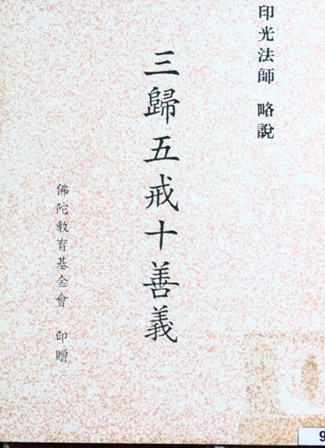 印光法師 略說
三歸五戒十善義
佛陀教育基金會 印贈
9